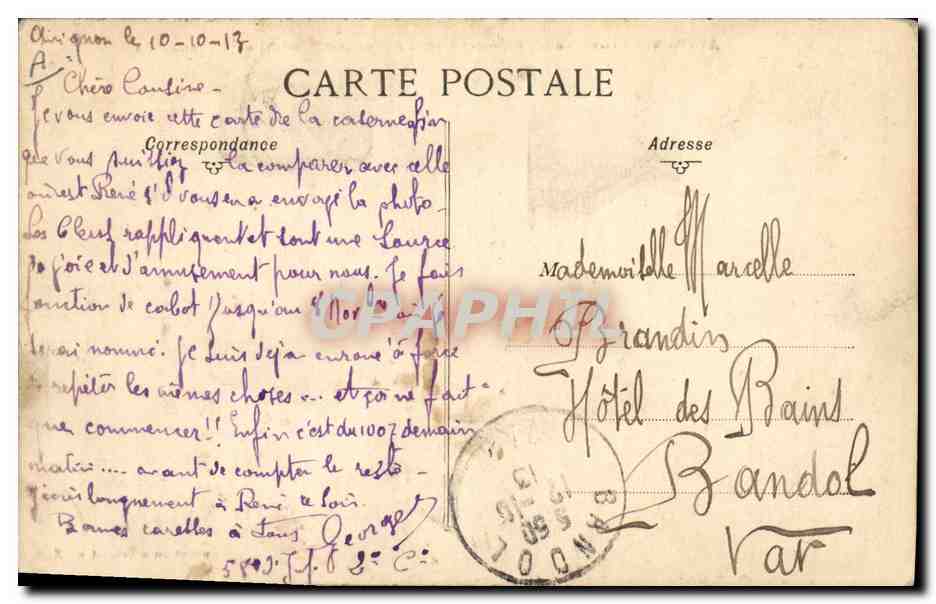 Avignon le 10-10-13
CARTE POSTALE
Chère Cousine -
Je vous envoie cette carte de la caserne afin
Correspondance
que vous puissiez la comparer avec celle
où est René s'il vous en a envoyé la photo -
Les Bleus rappliquent et sont une source
de joie et d'amusement pour nous. Je fais
fonction de cabot jusqu'au
serai nommé. Je suis déjà enroué à force
de répéter les mêmes choses ... et ça ne fait
que commencer!! Enfin c'est du 1007 demain
matin .... avant de compter le reste -
J'écris longuement à René ce soir.
Bonnes caresses à tous, Georges
58e 2e Cie
Adresse
Mademoiselle Marcelle
Brandin
Hôtel des Bains
Bandol
Var
BANDOL
CPAPHIL